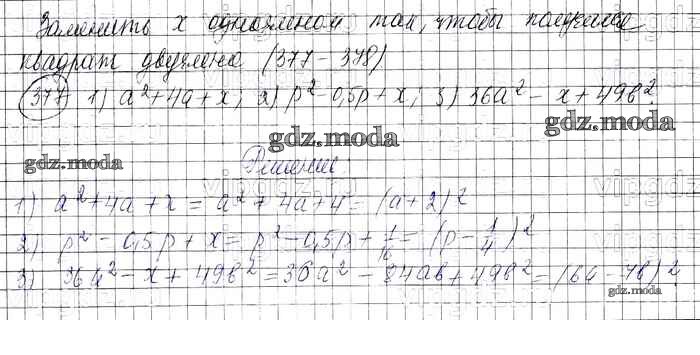 Заменить x одночленом так, чтобы получился
квадрат двучлена (377 - 378)
377 1) a² + 4a + x; 2) p² - 0,5p + x; 3) 36a² - x + 49b².
gdz.moda
gdz.moda
gdz.moda
Решение.
1) a² + 4a + x = a² + 4a + 4 = (a + 2)²
2) p² - 0,5p + x = p² - 0,5p + 1/16 = (p - 1/4)²
3) 36a² - x + 49b² = 36a² - 84ab + 49b² = (6a - 7b)²
gdz.moda